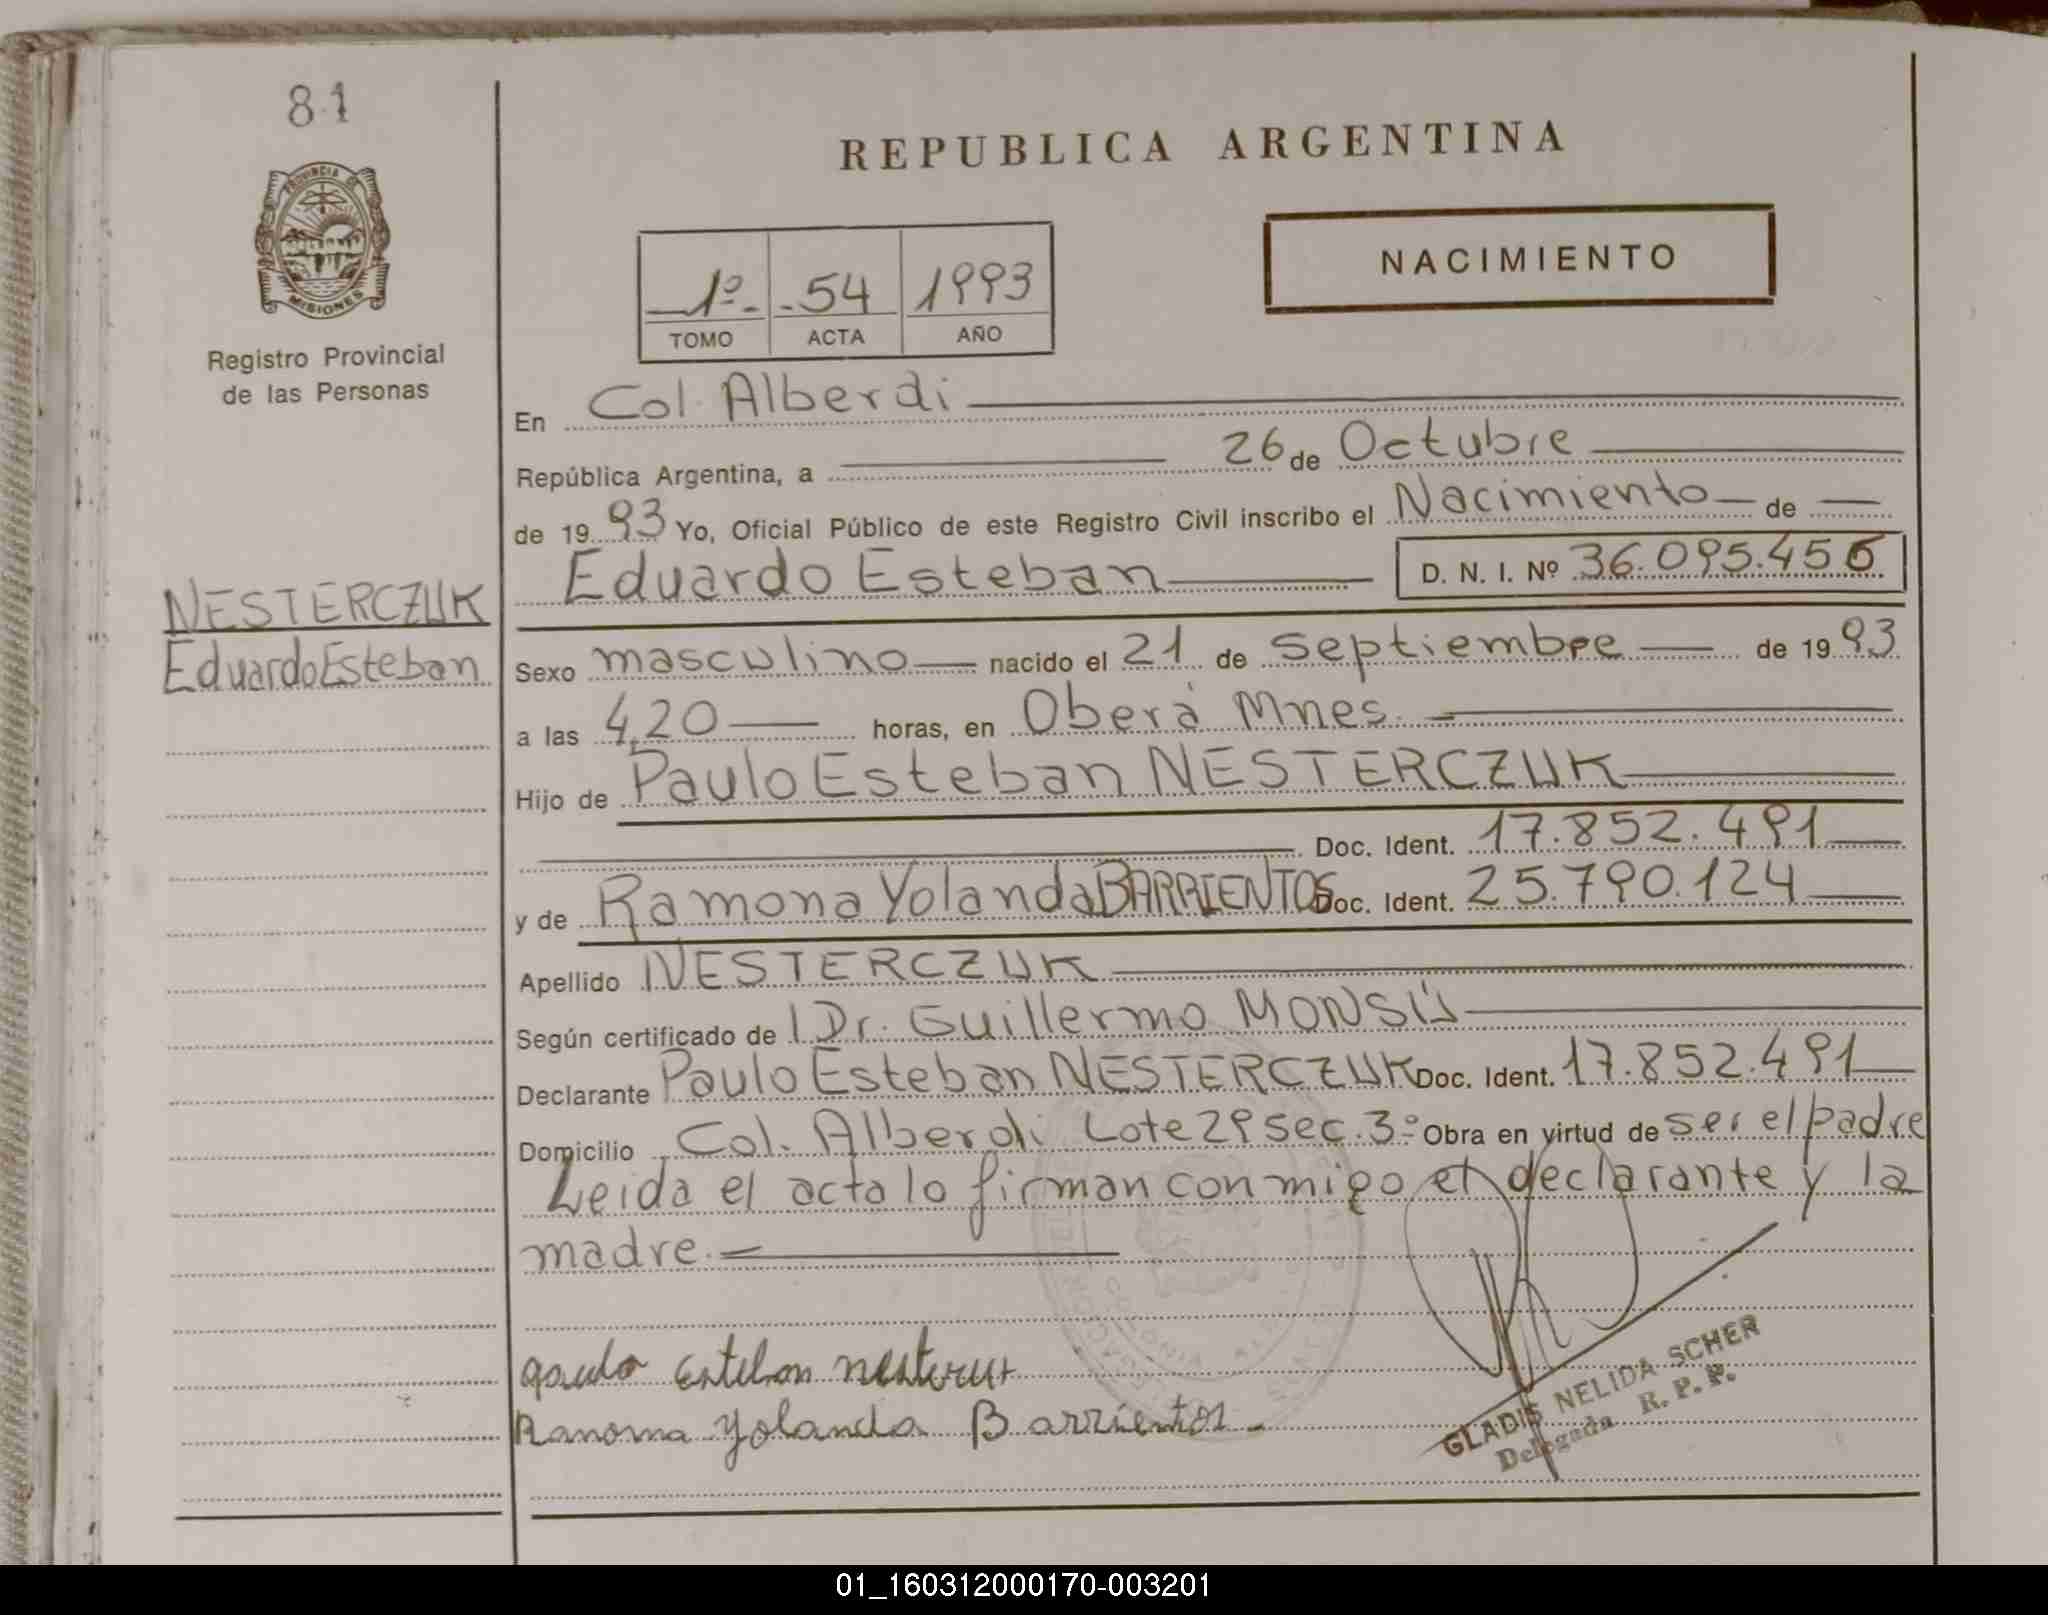 81
PROVINCIA DE
MISIONES
Registro Provincial
de las Personas
NESTERCZUK
Eduardo Esteban
REPUBLICA ARGENTINA
1º 54 1993
TOMO ACTA AÑO
NACIMIENTO
En Col. Alberdi
República Argentina, a 26 de Octubre
de 19 93 Yo, Oficial Público de este Registro Civil inscribo el Nacimiento de
Eduardo Esteban D. N. I. Nº 36.095.456
Sexo masculino nacido el 21 de septiembre de 19 93
a las 4,20 horas, en Oberá Mnes.
Hijo de Paulo Esteban NESTERCZUK
Doc. Ident. 17.852.491
y de Ramona Yolanda BARRIENTOS Doc. Ident. 25.790.124
Apellido NESTERCZUK
Según certificado de Dr. Guillermo
Declarante Paulo Esteban NESTERCZUK Doc. Ident. 17.852.491
Domicilio Col. Alberdi Lote 29 sec. 3º Obra en virtud de ser el padre
Leida el acta lo firman con migo el declarante y la
madre.
Esteban
Ramona Yolanda Barrientos
GLADIS NELIDA SCHER
Delegada R. P. P.
01_160312000170-003201